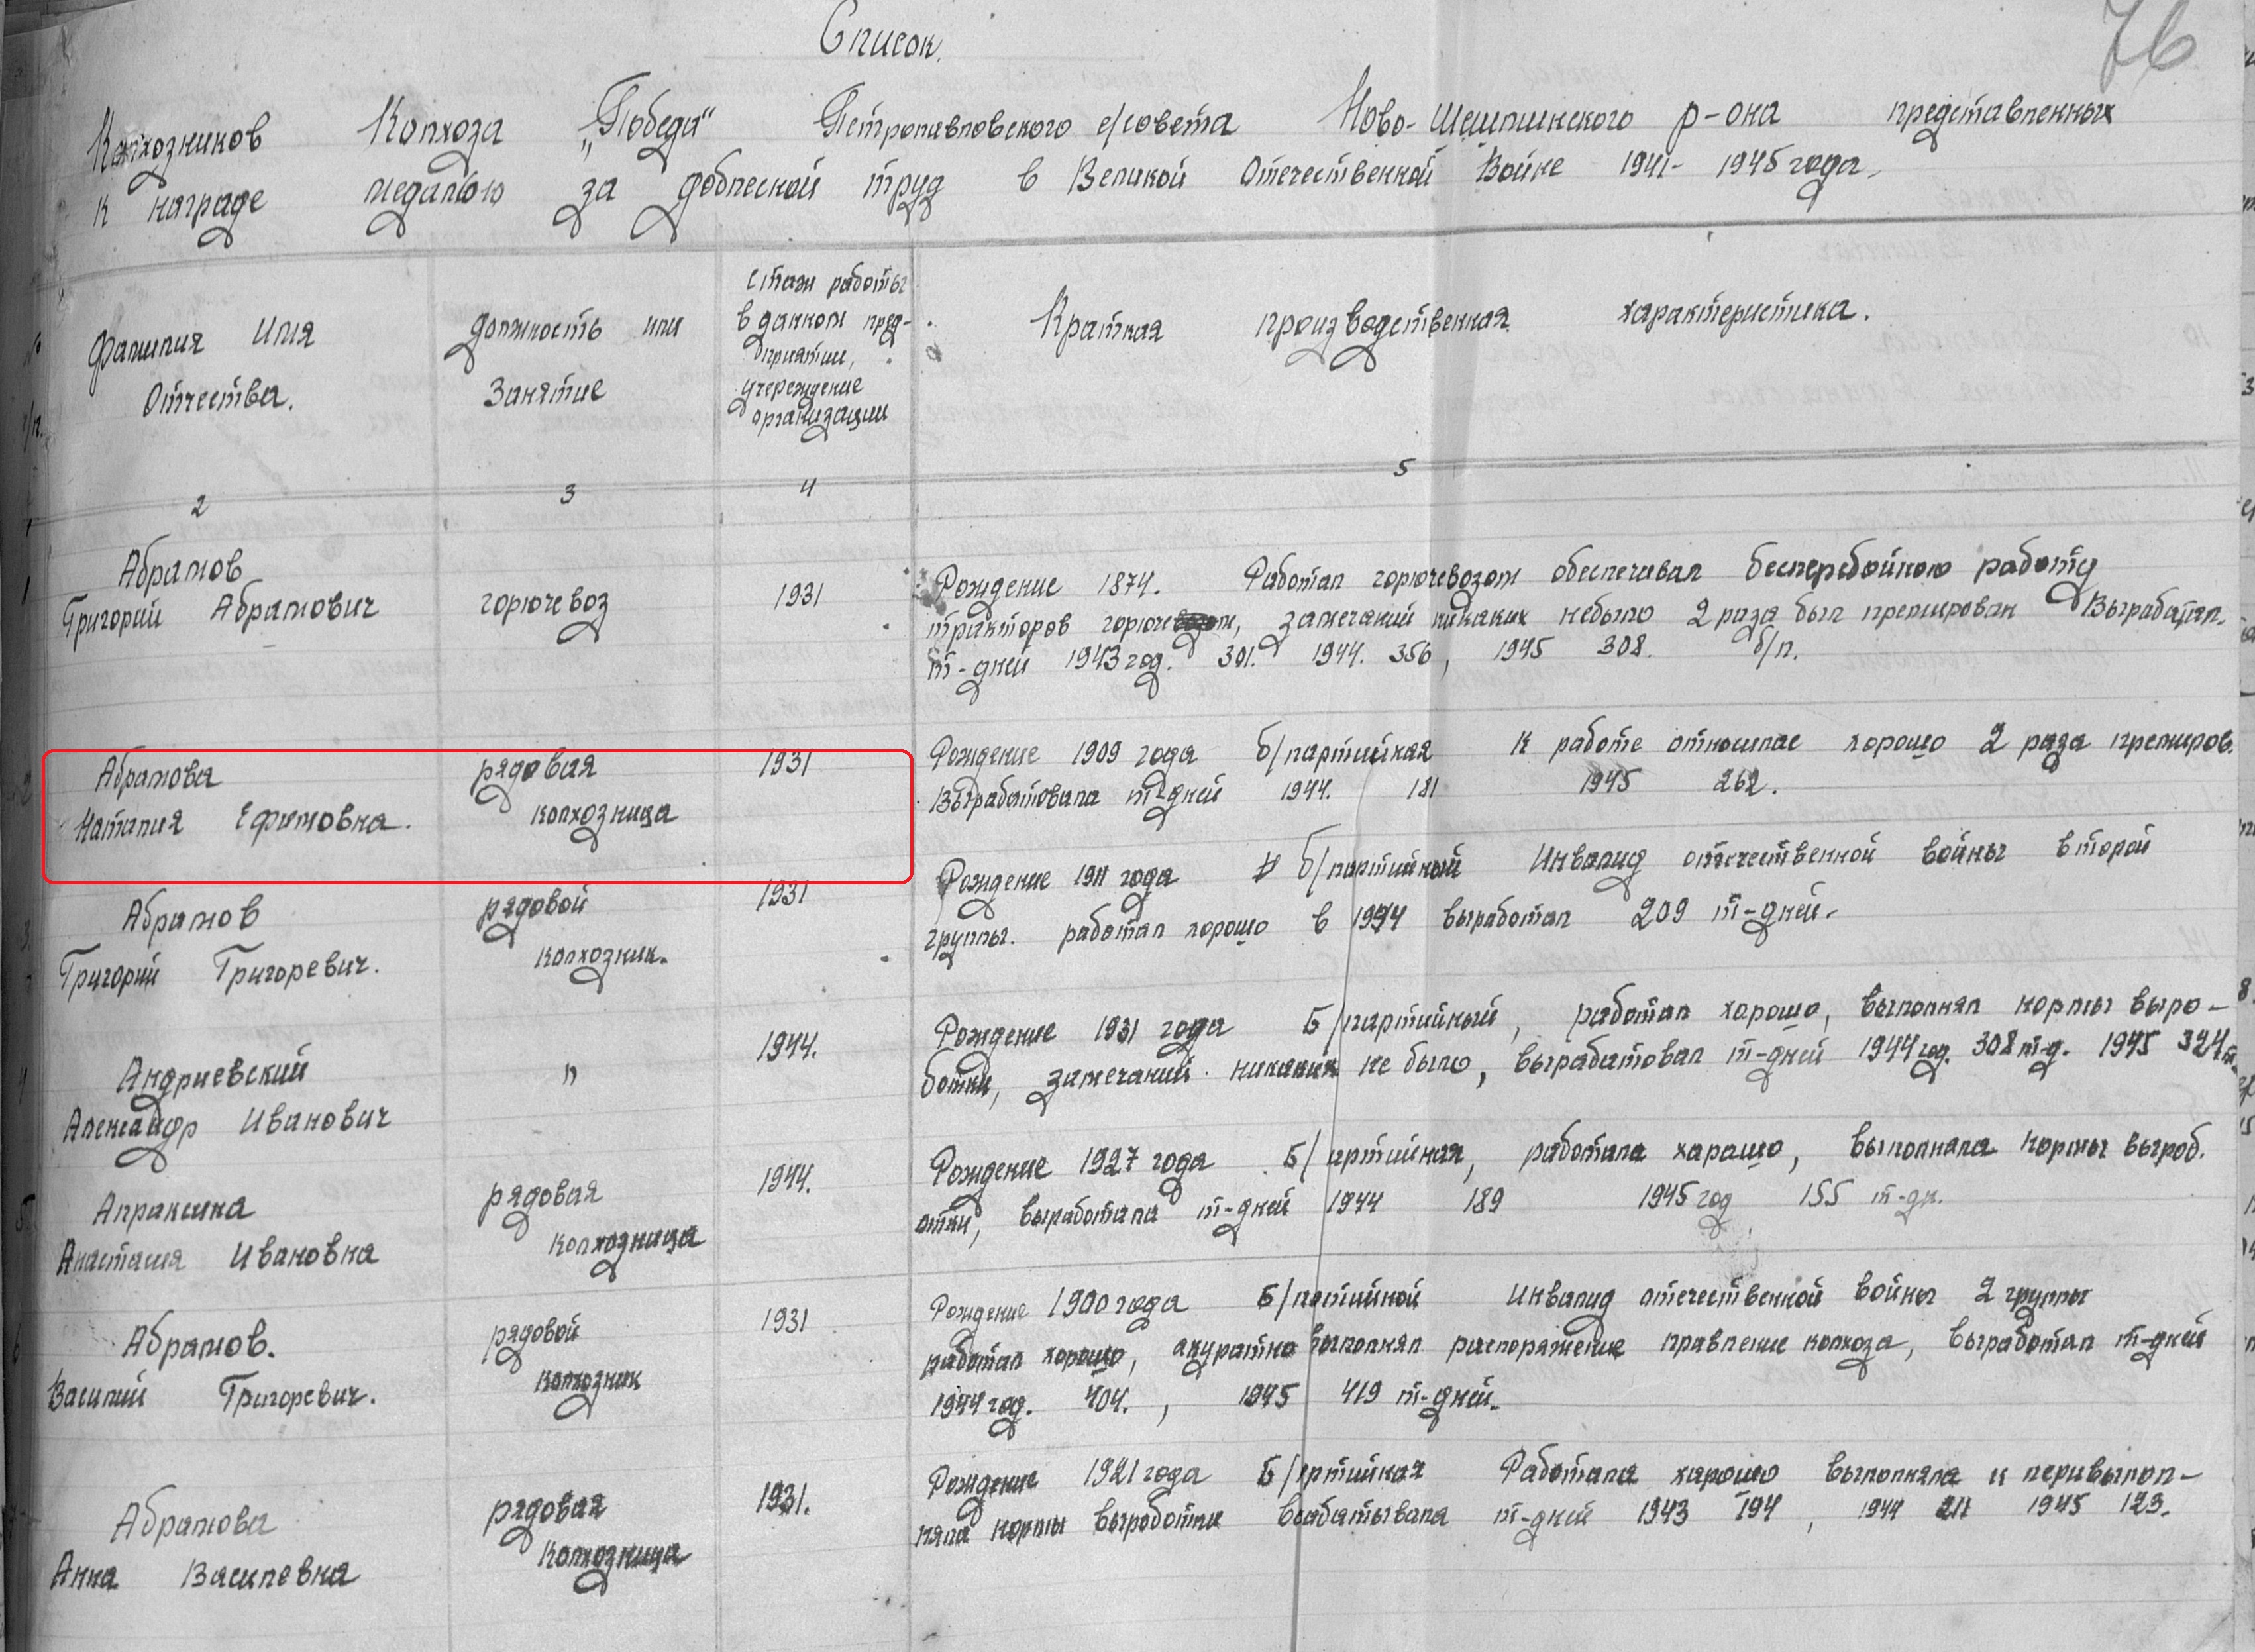 76
Список.
Колхозников Колхоза „Победа“ Петропавловского с/совета Ново-Шешминского р-она представленных
к награде медалью за доблеской труд в Великой Отечественной Войне 1941- 1945 года.
Фамилия Имя
Отчества.
должность или
Занятие
Стаж работы
в данном пред-
приятии,
учереждение
организации
Краткая производственная характеристика.
2 3 4 5
1 Абрамов
Григорий Абрамович
горючевоз
1931
Рождение 1874. Работал горючевозом обеспечивал бесперебойною работу
тракторов горючем, замечаний никаких небыло 2 раза был премирован Выработал.
т-дней 1943 год. 301. 1944. 356, 1945 308. б/п.
2 Абрамова
Наталия Ефимовна.
рядовая
колхозница
1931
Рождение 1909 года б/партийная К работе относилас хорошо 2 раза премиров.
Выработовала т-дней 1944. 181 1945 262.
3 Абрамов
Григорий Григоревич.
рядовой
колхозник.
1931
Рождение 1911 года б/партийный Инвалид отечественной войны второй
группы. работал хорошо в 1944 выработал 209 т-дней.
4 Андриевский
Александр Иванович
"
1944.
Рождение 1931 года Б/партийный, работал хорошо, выполнял нормы выро-
ботки, замечаний никаких не было, вырабатовал т-дней 1944 год. 308 т-д. 1945 324 т.
5 Апраксина
Анастасия Ивановна
рядовая
колхозница
1944.
Рождение 1927 года Б/артийная, работала харашо, выполнала нормы выроб.
отки, выработала т-дней 1944 189 1945 год 155 т-дн.
6 Абрамов.
Василий Григоревич.
рядовой
колхозник
1931
Рождение 1900 года Б/потийной Инвалид отечественной войны 2 группы
работал хорошо, акуратно выполнял распоряжение правление колхоза, выработал т-дней
1944 год. 404. , 1945 419 т-дней.
Абрамова
Анна Василевна
рядовая
колхозница
1931.
Рождение 1921 года Б/ртийная Работала харошо выполняла и перивыпол-
няла нормы выроботки т-дней 1943 194, 1944 1945 123.